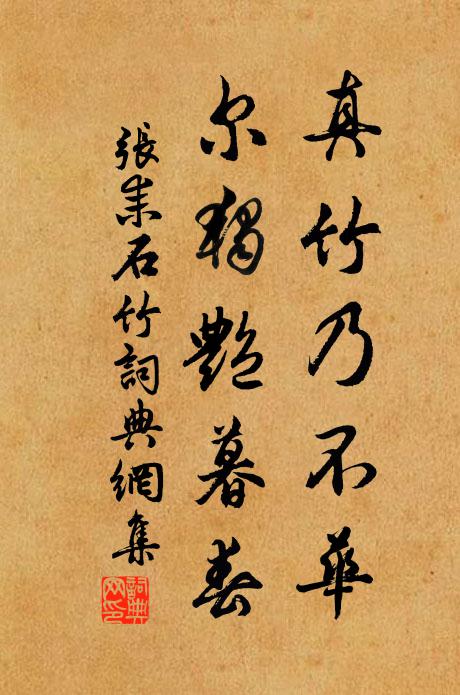 真竹乃不華
尔獨艷暮春
張耒石竹詞典網集
詞典网印